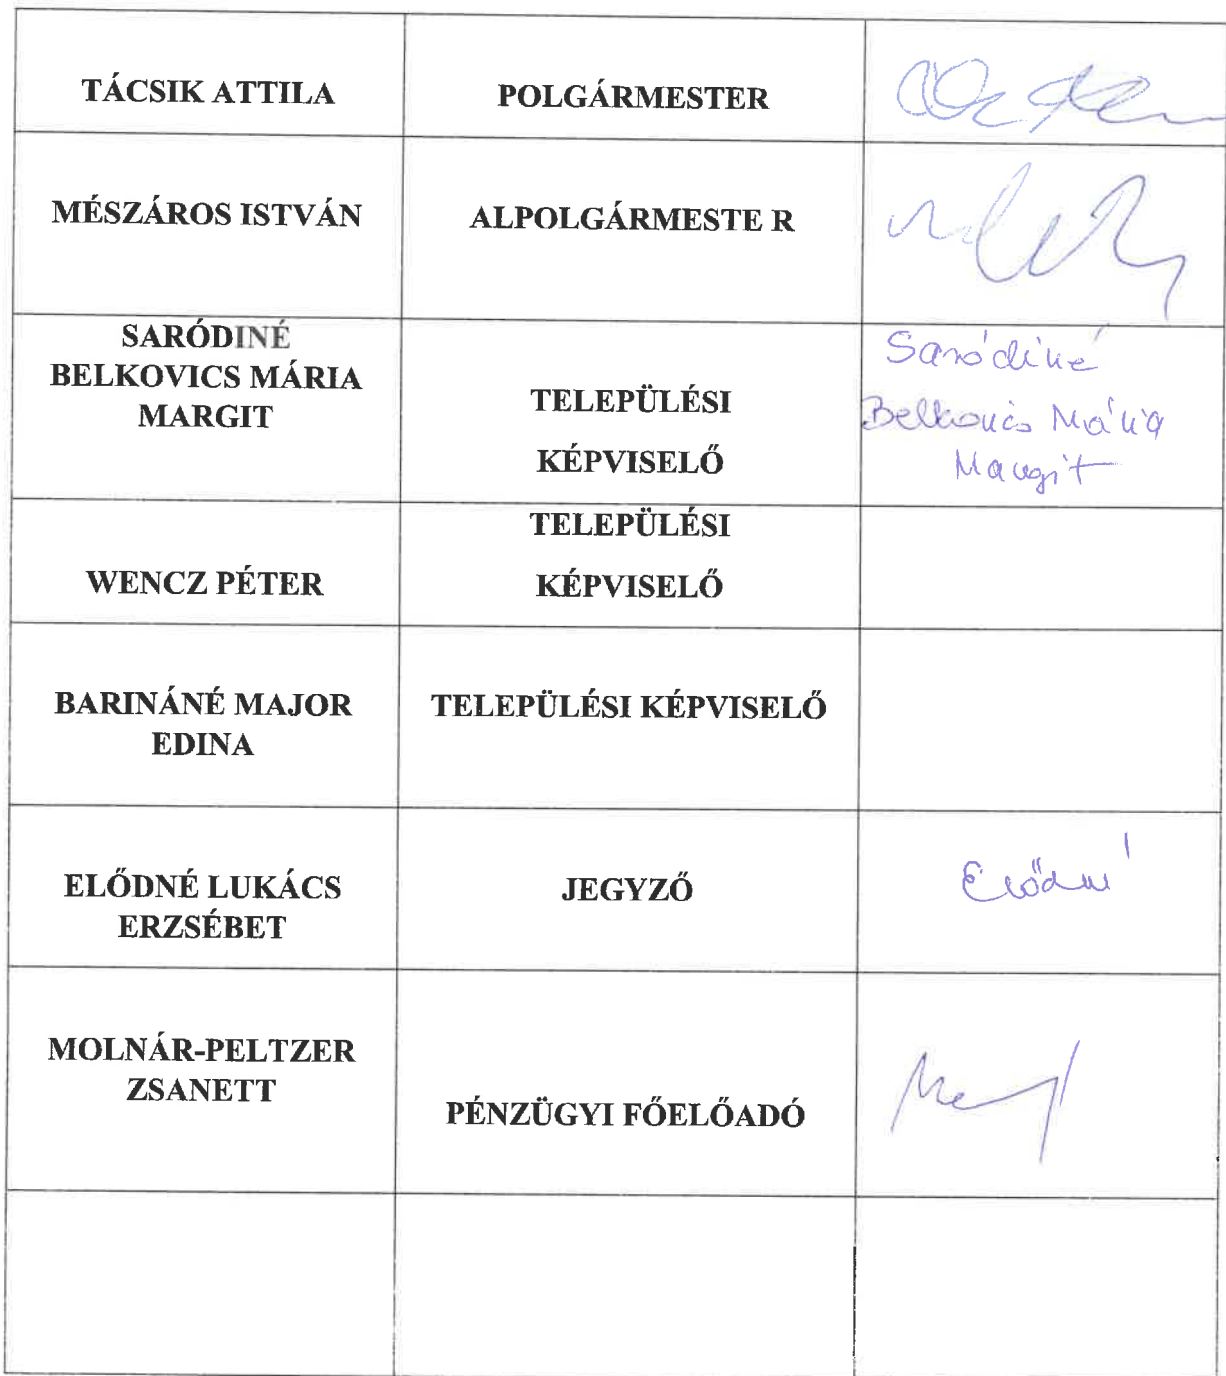 TÁCSIK ATTILA
POLGÁRMESTER
MÉSZÁROS ISTVÁN
ALPOLGÁRMESTE R
SARÓDINÉ
BELKOVICS MÁRIA
MARGIT
TELEPÜLÉSI
KÉPVISELŐ
Saródiné
Belkovics Mária
Margit
WENCZ PÉTER
TELEPÜLÉSI
KÉPVISELŐ
BARINÁNÉ MAJOR
EDINA
TELEPÜLÉSI KÉPVISELŐ
ELŐDNÉ LUKÁCS
ERZSÉBET
JEGYZŐ
Elődné
MOLNÁR-PELTZER
ZSANETT
PÉNZÜGYI FŐELŐADÓ